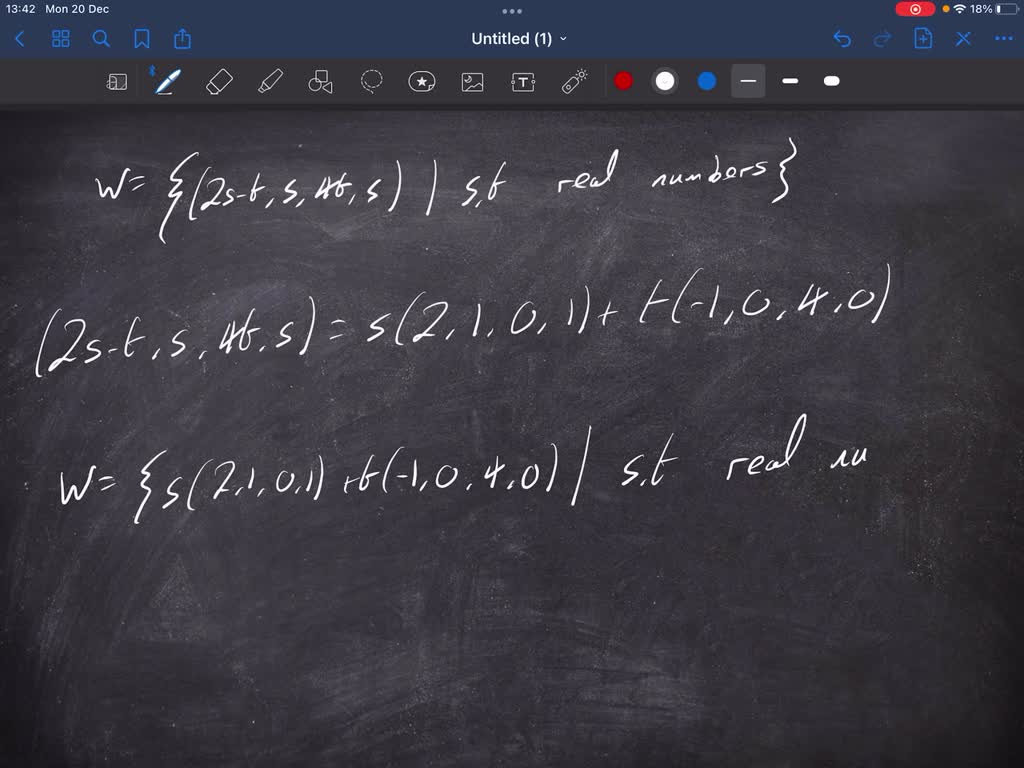 13:42 Mon 20 Dec 18%
Untitled (1)
T
W= {(2s-t, s, 4t, s) | s,t real numbers}
(2s-t, s, 4t, s) = s(2, 1, 0, 1) + t(-1, 0, 4, 0)
W= {s(2,1,0,1) +t(-1,0,4,0) | s,t real nu